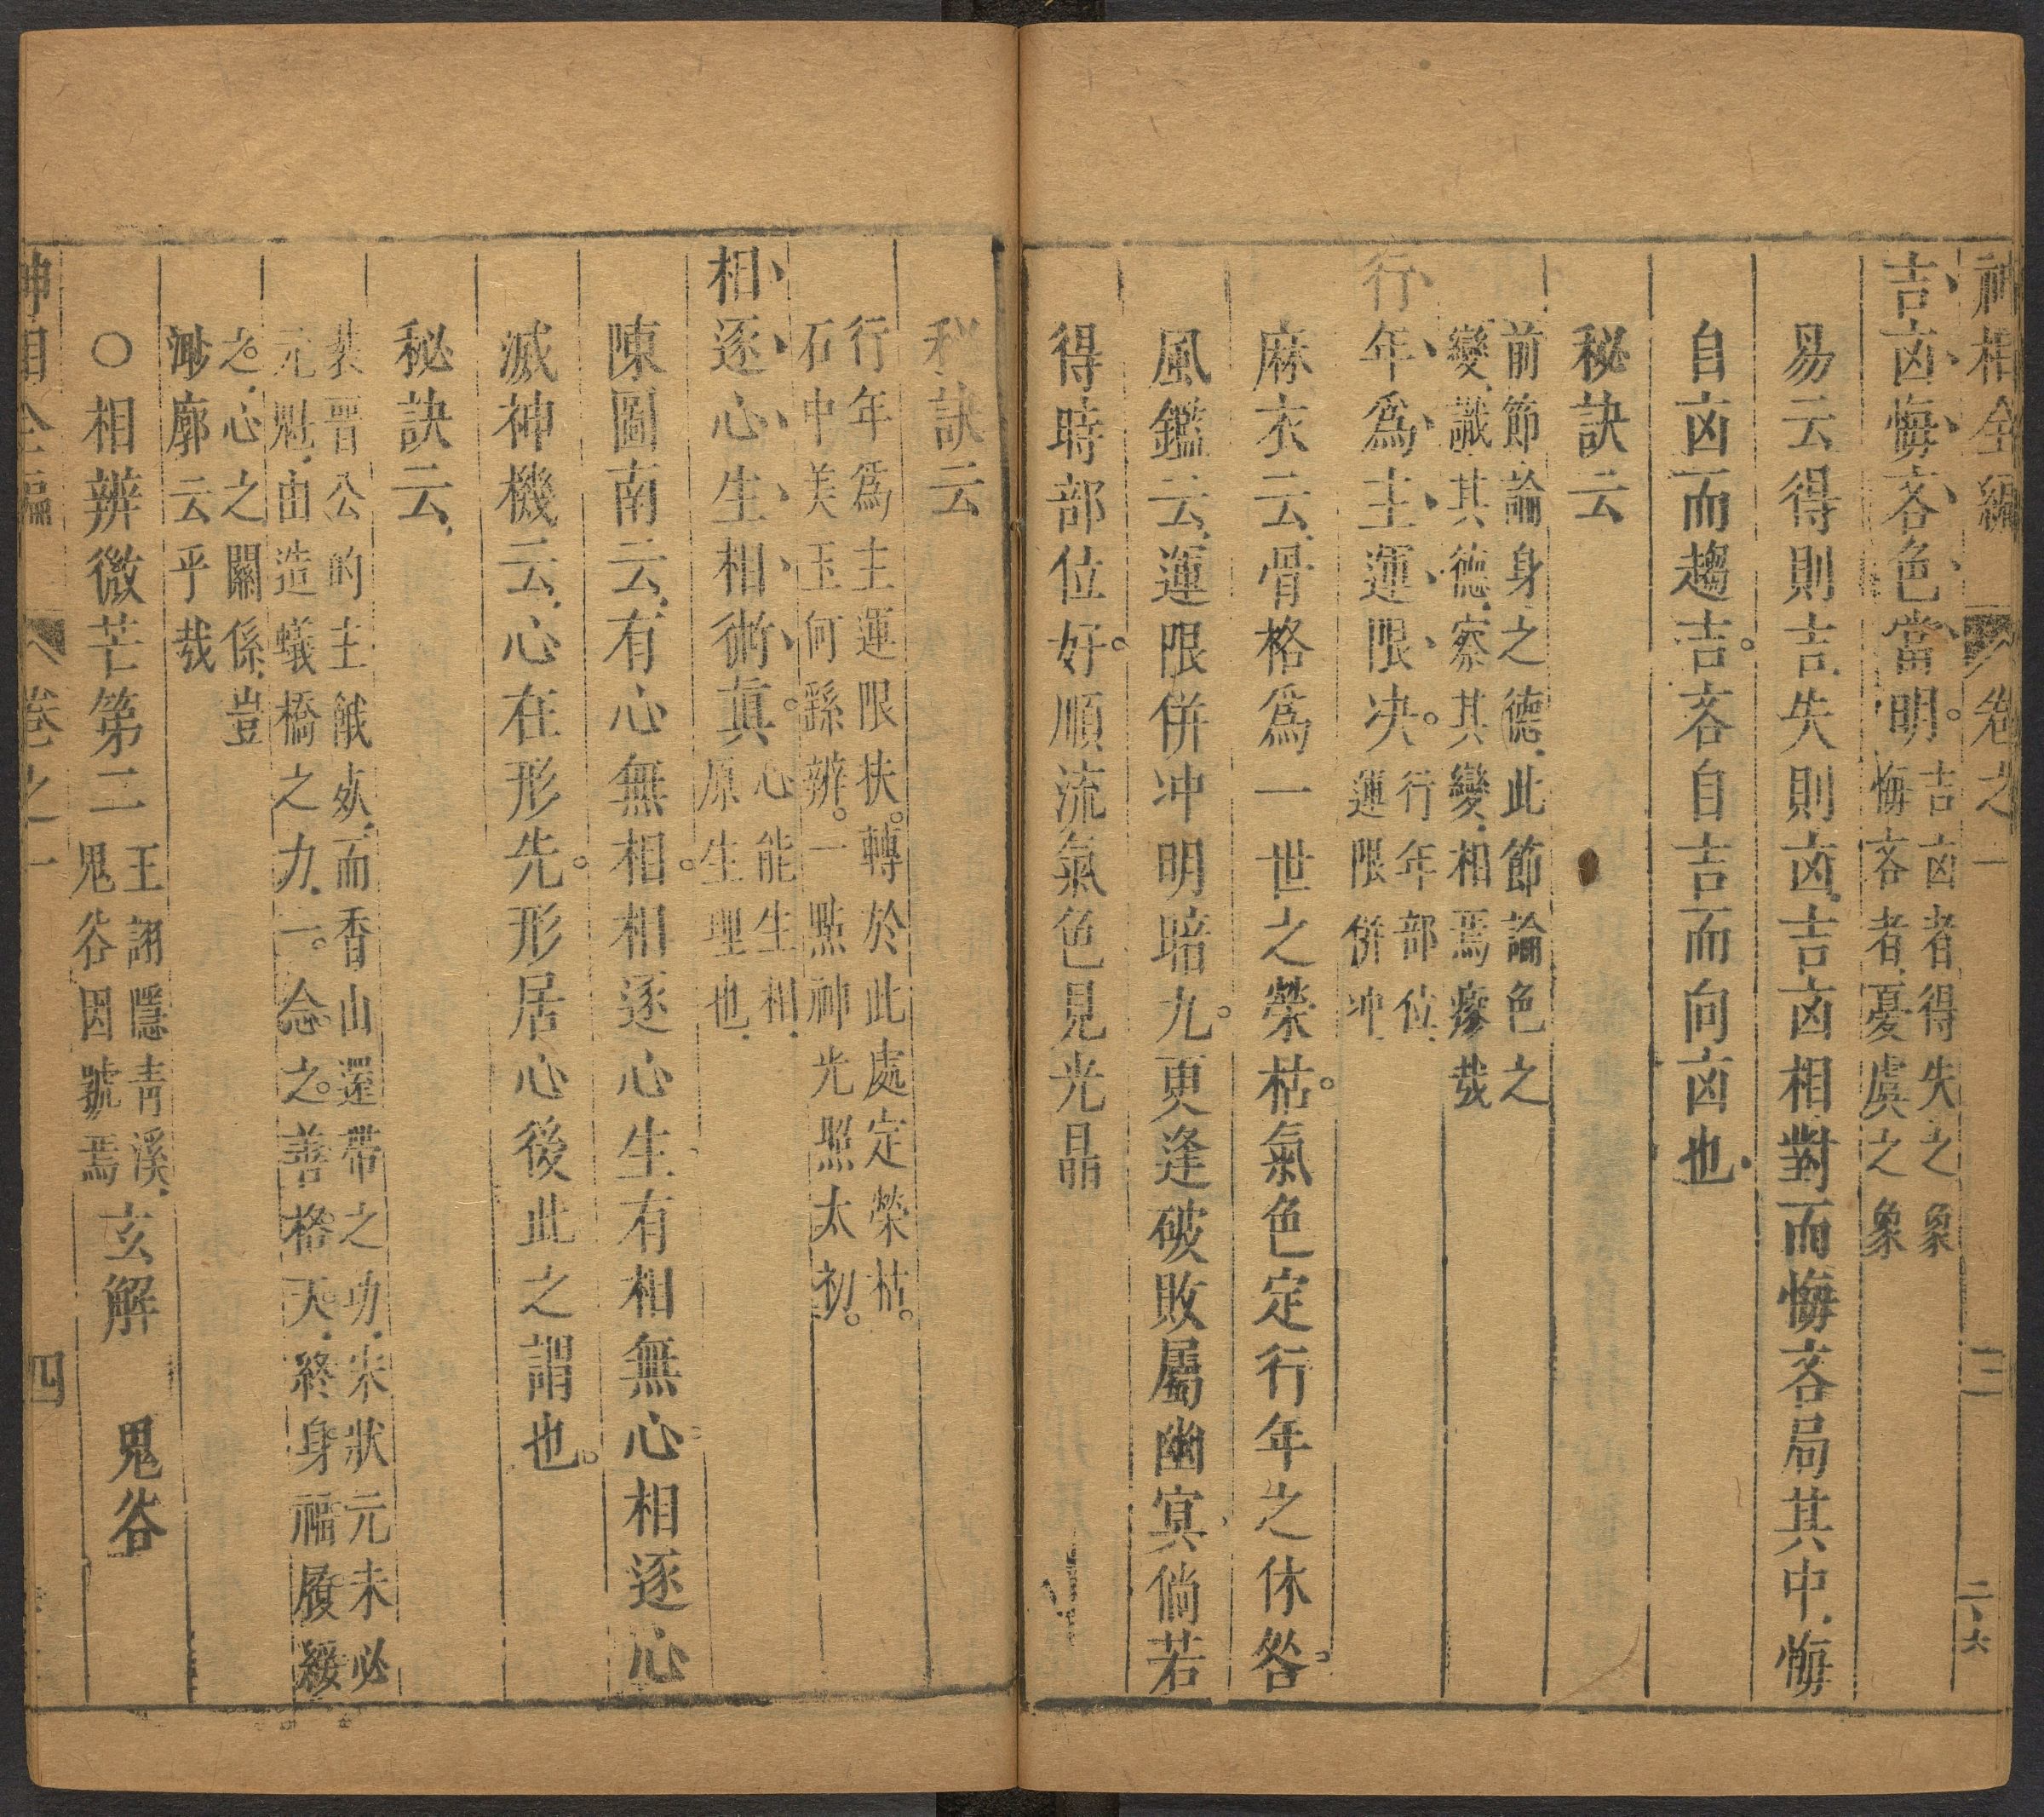 神相全編 卷之一 三 二、六
吉凶悔吝色當明。吉凶者得失之象
悔吝者、憂虞之象
易云得則吉、失則凶、吉凶相對而悔吝局其中、悔
自凶而趨吉。吝自吉而向凶也、
秘訣云
前節論身之德、此節論色之
變、識其德、察其變、相焉廋哉
行年爲主運限决。行年部位、
運限併冲
麻衣云、骨格爲一世之榮枯。氣色定行年之休咎、
風鑑云、運限併冲明暗九。更逢破敗屬幽冥、倘若
得時部位好。順流氣色見光晶
秘訣云
行年爲主運限扶。轉於此處定榮枯。
石中美玉何繇辨。一點神光照太初。
相逐心生相術眞。心能生相、
原生理也、
陳圖南云、有心無相。相逐心生、有相無心。相逐心
滅神機云、心在形先。形居心後此之謂也。
秘訣云、
裴晋公的主餓死、而香山還帶之功、宋狀元未必
元魁、由造蟻橋之力、一念之善格天、終身福履綏
之、心之關係、豈
渺廓云乎哉
○相辨微芒第二 王詡隱青溪、
鬼谷因號焉 玄解 鬼谷
神相全編 卷之一 四